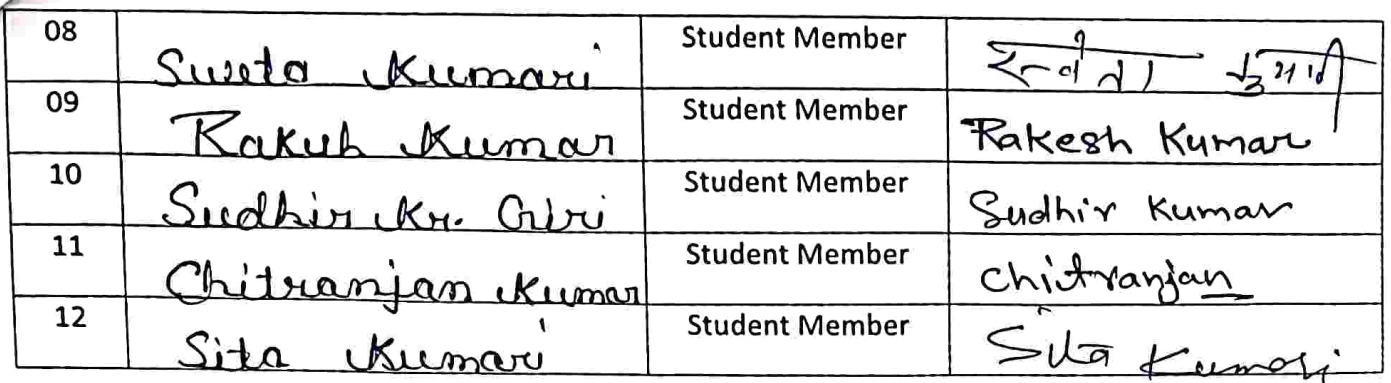 08 Sweta Kumari Student Member श्वेता कुमारी
09 Rakesh Kumar Student Member Rakesh Kumar
10 Sudhir Kr. Giri Student Member Sudhir Kumar
11 Chitranjan Kumar Student Member Chitranjan
12 Sita Kumari Student Member Sita Kumari